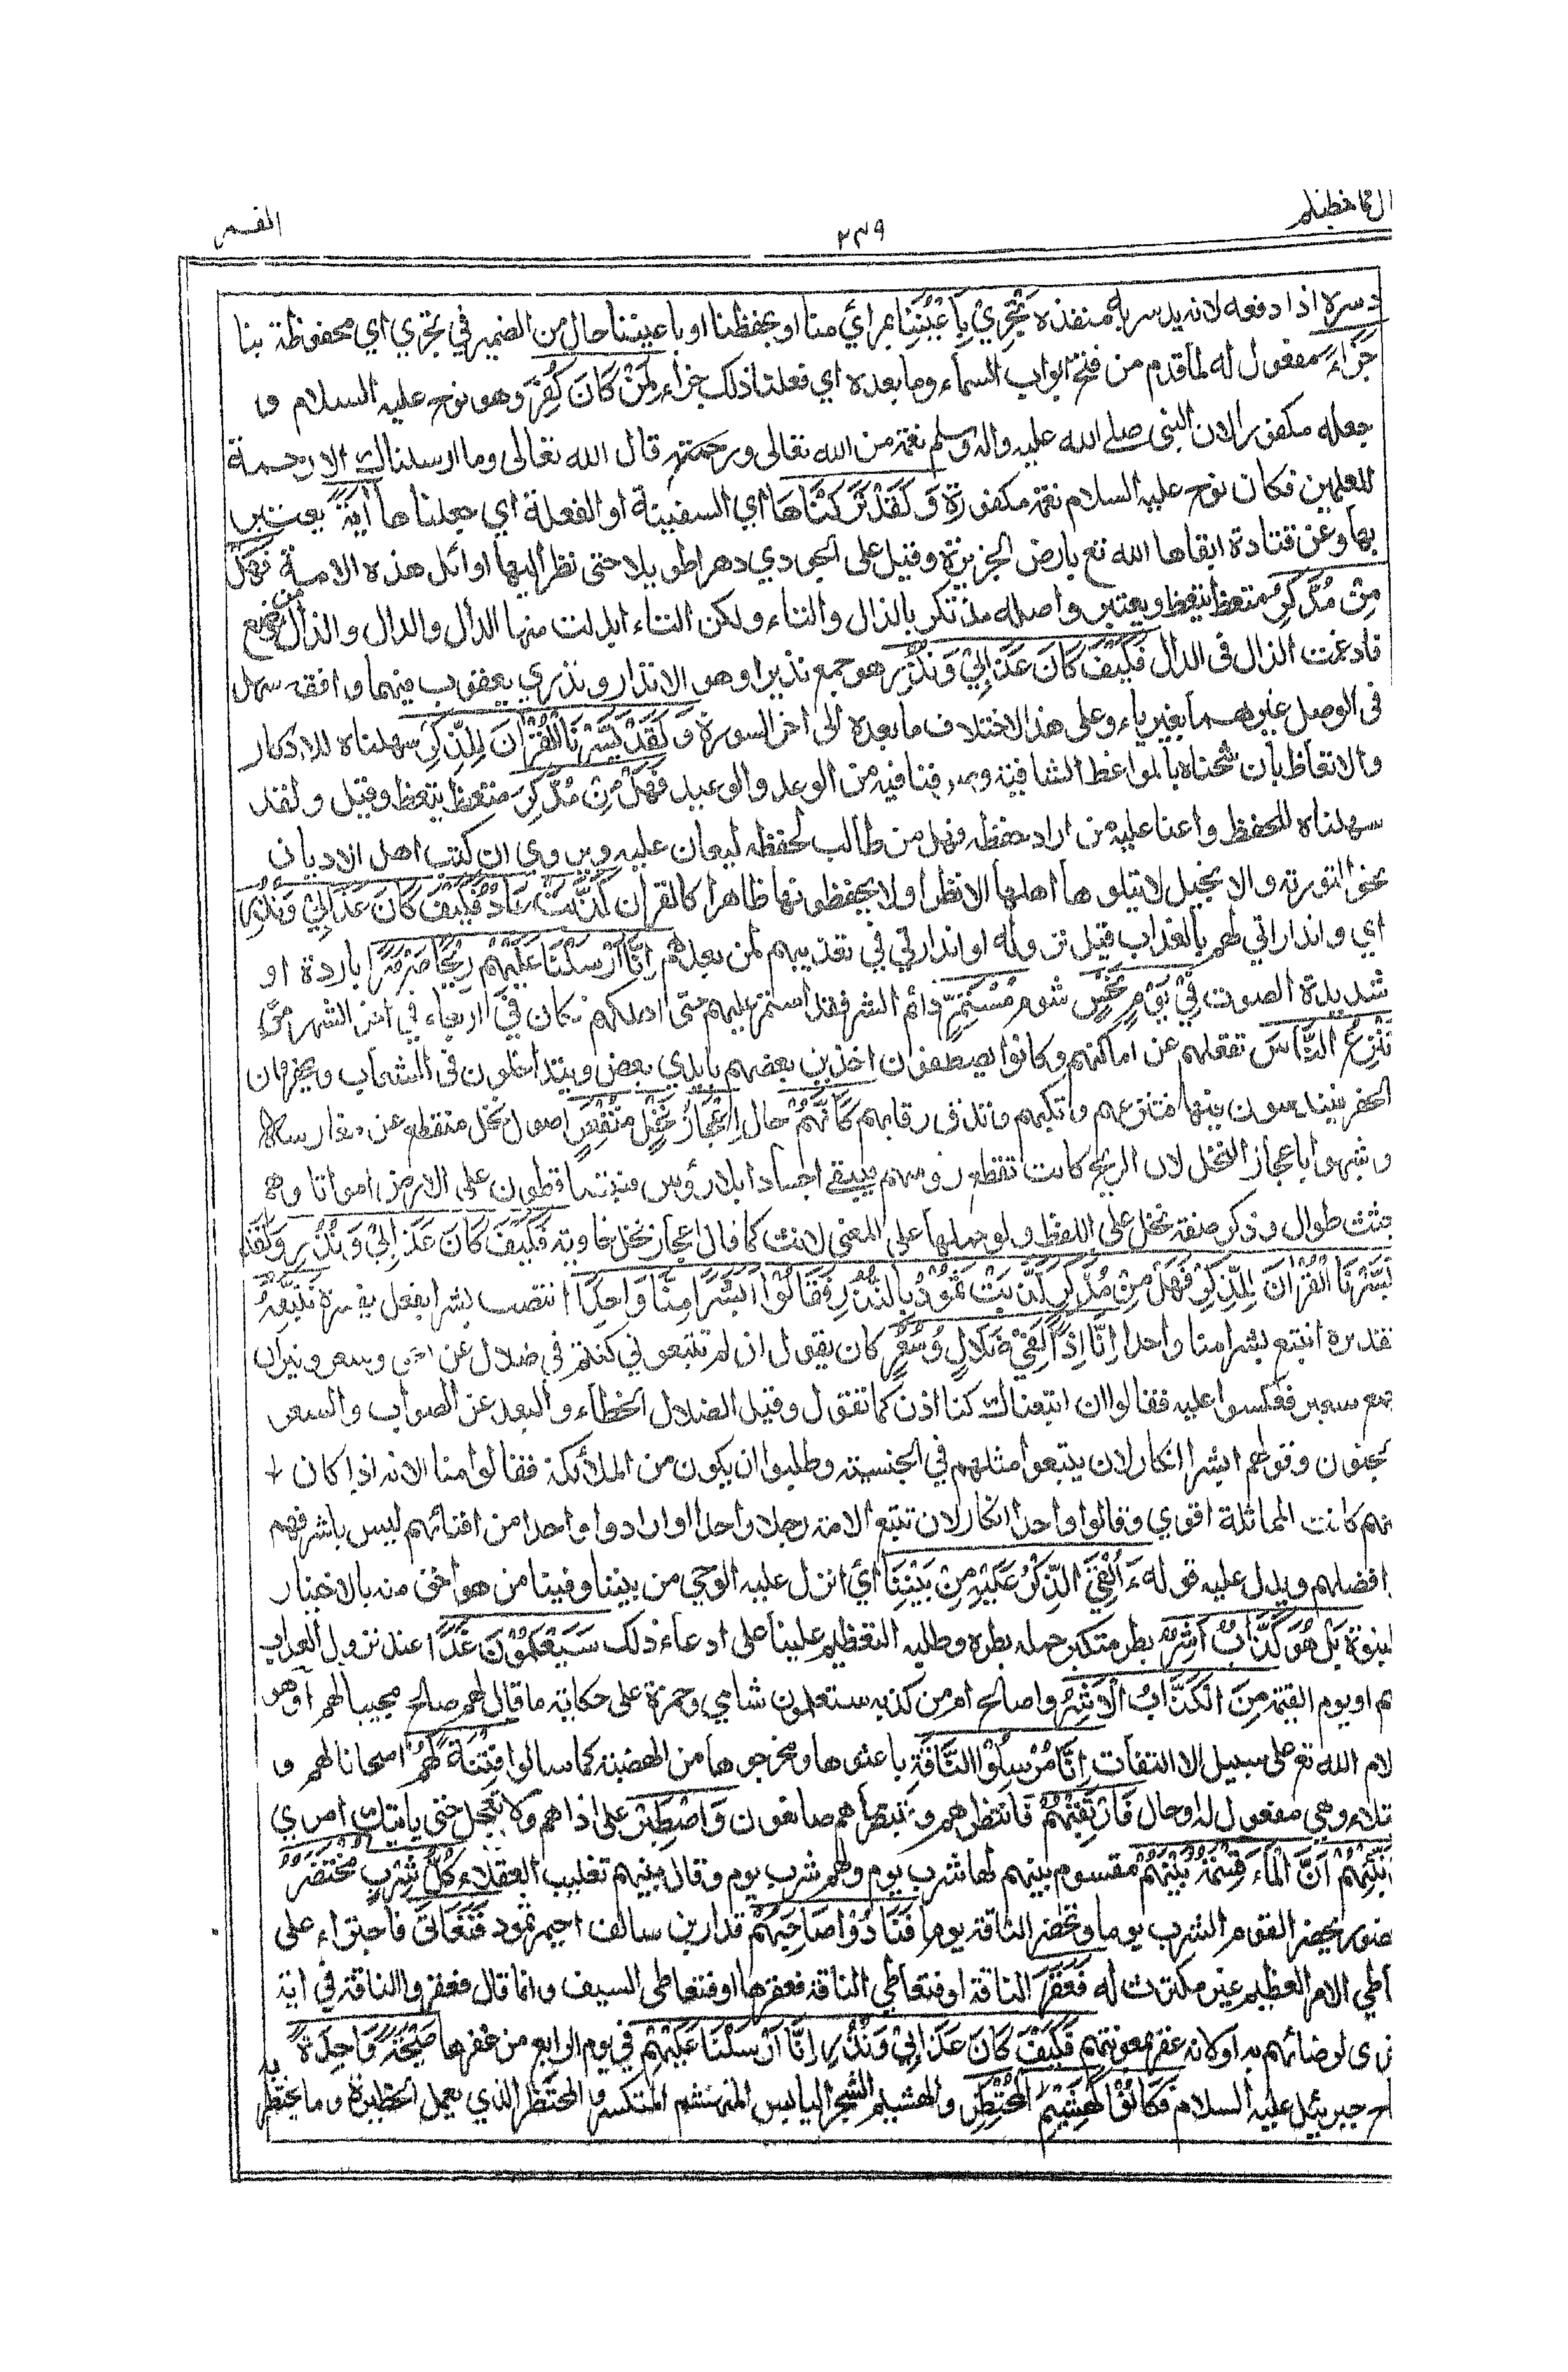 قال فما خطبكم
٢٣٩
القمر
دسره اذا دفعه لانه يدسر به منفذه تَجْرِيْ بِاَعْيُنِنَا بمرأي منا او بحفظنا او باعيننا حال من الضمير في تجري اي محفوظة بنا
جَزَاءً مفعول له لما قدم من فتح ابواب السماء وما بعده اي فعلنا ذلك جزاء لِمَنْ كَانَ كُفِرَ وهو نوح عليه السلام و
جعله مكفورا لان النبي صلے الله عليه واله وسلم نعمة من الله تعالى ورحمته قال الله تعالى وما ارسلناك الا رحمة
للعلمين فكان نوح عليه السلام نعمة مكفورة وَلَقَدْ تَرَكْنَاهَا اي السفينة او الفعلة اي جعلناها اٰيَةً يعتبر
بها وعن قتادة ابقاها الله تع بارض الجزيرة وقيل على الجودي دهرا طويلا حتى نظر اليها اوائل هذه الامة فَهَلْ
مِنْ مُدَّكِرٍ متعظ يتعظ ويعتبر واصله مذتكر بالذال والتاء ولكن التاء ابدلت منها الدال والدال والذال من موضع
فادغمت الذال في الدال فَكَيْفَ كَانَ عَذَابِيْ وَنُذُرِ هو جمع نذير او هو الانذار ونذري يعقوب فيهما وافقه سهل
في الوصل غيرهما بغير ياء وعلى هذا الاختلاف ما بعده الى اخر السورة وَلَقَدْ يَسَّرْنَا الْقُرْاٰنَ لِلذِّكْرِ سهلناه للادكار
والاتعاظ بان شحناه بالمواعظ الشافية وصرفنا فيه من الوعد والوعيد فَهَلْ مِنْ مُدَّكِرٍ متعظ يتعظ وقيل ولقد
سهلناه للحفظ واعنا عليه من اراد حفظه فهل من طالب لحفظه ليعان عليه ويروي ان كتب اهل الاديان
نحو التورية والانجيل لا يتلوها اهلها الا نظرا ولا يحفظونها ظاهرا كالقران كَذَّبَتْ عَادٌ فَكَيْفَ كَانَ عَذَابِيْ وَنُذُرِ
اي وانذاراتي لهم بالعذاب قبل نزوله او انذاراتي في تعذيبهم لمن بعدهم اِنَّا اَرْسَلْنَا عَلَيْهِمْ رِيْحًا صَرْصَرًا باردة او
شديدة الصوت فِيْ يَوْمِ نَحْسٍ شوم مُسْتَمِرٍّ دائم الشر فقد استمر عليهم حتى اهلكهم وكان في اربعاء في اخر الشهر
تَنْزِعُ النَّاسَ تقلعهم عن اماكنهم وكانوا يصطفون اخذين بعضهم بايدي بعض ويتداخلون في الشعاب ويحفرون
الحفر فيندسون فيها فتنزعهم وتكبهم وتدق رقابهم كَاَنَّهُمْ حال اَعْجَازُ نَخْلٍ مُنْقَعِرٍ اصول نخل منقطع عن مغارسها
وشبهوا باعجاز النخل لان الريح كانت تقطع رؤسهم فيبقي اجسادا بلا رؤس فيتساقطون على الارض امواتا وهم
جثث طوال وذكر صفة نخل على اللفظ ولو حملها على المعنى لانث كما قال اعجاز نخل خاوية فَكَيْفَ كَانَ عَذَابِيْ وَنُذُرِ وَلَقَدْ
يَسَّرْنَا الْقُرْاٰنَ لِلذِّكْرِ فَهَلْ مِنْ مُدَّكِرٍ كَذَّبَتْ ثَمُوْدُ بِالنُّذُرِ فَقَالُوْا اَبَشَرًا مِنَّا وَاحِدًا انتصب بشرا بفعل يفسره نَتَّبِعُهُ
تقديره انتبع بشرا منا واحدا اِنَّا اِذًا لَفِيْ ضَلَالٍ وَسُعُرٍ كان يقول ان لم تتبعوني كنتم في ضلال عن الحق وسعر ونيران
جمع سعير فعكسوا عليه فقالوا ان اتبعناك كنا اذن كما تقول وقيل الضلال الخطاء والبعد عن الصواب والسعر
الجنون وقولهم ابشرا انكار لان يتبعوا مثلهم في الجنسية وطلبوا ان يكون من الملائكة فقالوا منا لانه اذا كان
منهم كانت المماثلة اقوي وقالوا واحدا انكار لان تتبع الامة رجلا واحدا او ارادوا واحدا من افنائهم ليس باشرفهم
وافضلهم ويدل عليه قوله ءَاُلْقِيَ الذِّكْرُ عَلَيْهِ مِنْ بَيْنِنَا اي انزل عليه الوحي من بيننا وفينا من هو احق منه بالاختيار
للنبوة بَلْ هُوَ كَذَّابٌ اَشِرٌ بطر متكبر حمله بطره وطلبه التعظيم علينا على ادعاء ذلك سَيَعْلَمُوْنَ غَدًا عند نزول العذاب
بهم او يوم القيمة مَنِ الْكَذَّابُ الْاَشِرُ اصالح ام من كذبه ستعلمون شامي وحمزة على حكاية ما قال لهم صالح مجيبا لهم او هو
كلام الله تع على سبيل الالتفات اِنَّا مُرْسِلُوا النَّاقَةِ باعثوها ومخرجوها من الهضبة كما سالوا فِتْنَةً لَهُمْ امتحانا لهم و
ابتلاء وهي مفعول له او حال فَارْتَقِبْهُمْ فانتظرهم وتبصر ما هم صانعون وَاصْطَبِرْ على اذاهم ولا تعجل حتى ياتيك امري
وَنَبِّئْهُمْ اَنَّ الْمَاءَ قِسْمَةٌ بَيْنَهُمْ مقسوم بينهم لها شرب يوم ولهم شرب يوم وقال بينهم تغليب العقلاء كُلُّ شِرْبٍ مُحْتَضَرٌ
محضور يحضر القوم الشرب يوما وتحضر الناقة يوما فَنَادَوْا صَاحِبَهُمْ قدار بن سالف احيمر ثمود فَتَعَاطٰى فاجتراء على
تعاطي الامر العظيم غير مكترث له فَعَقَرَ الناقة او فتعاطي الناقة فعقرها او فتعاطى السيف وانما قال فعقروا الناقة في اية
اخرى لرضائهم به او لانه عقر بمعونتهم فَكَيْفَ كَانَ عَذَابِيْ وَنُذُرِ اِنَّا اَرْسَلْنَا عَلَيْهِمْ في يوم الرابع من عقرها صَيْحَةً وَاحِدَةً
صاح جبرئيل عليه السلام فَكَانُوْا كَهَشِيْمِ الْمُحْتَظِرِ والهشيم الشجر اليابس المتهشم المتكسر والمحتظر الذي يعمل الحظيرة وما يحتظر به